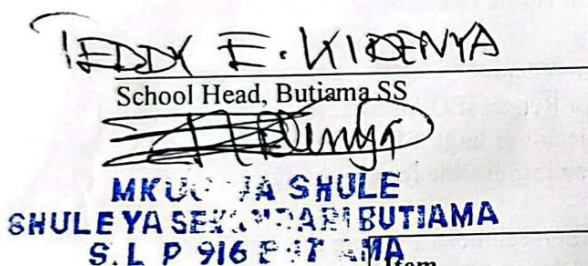 TEDDY E. KIDENYA
School Head, Butiama SS
MKUU WA SHULE
SHULE YA SEKONDARI BUTIAMA
S. L. P 916 BUTIAMA
Item